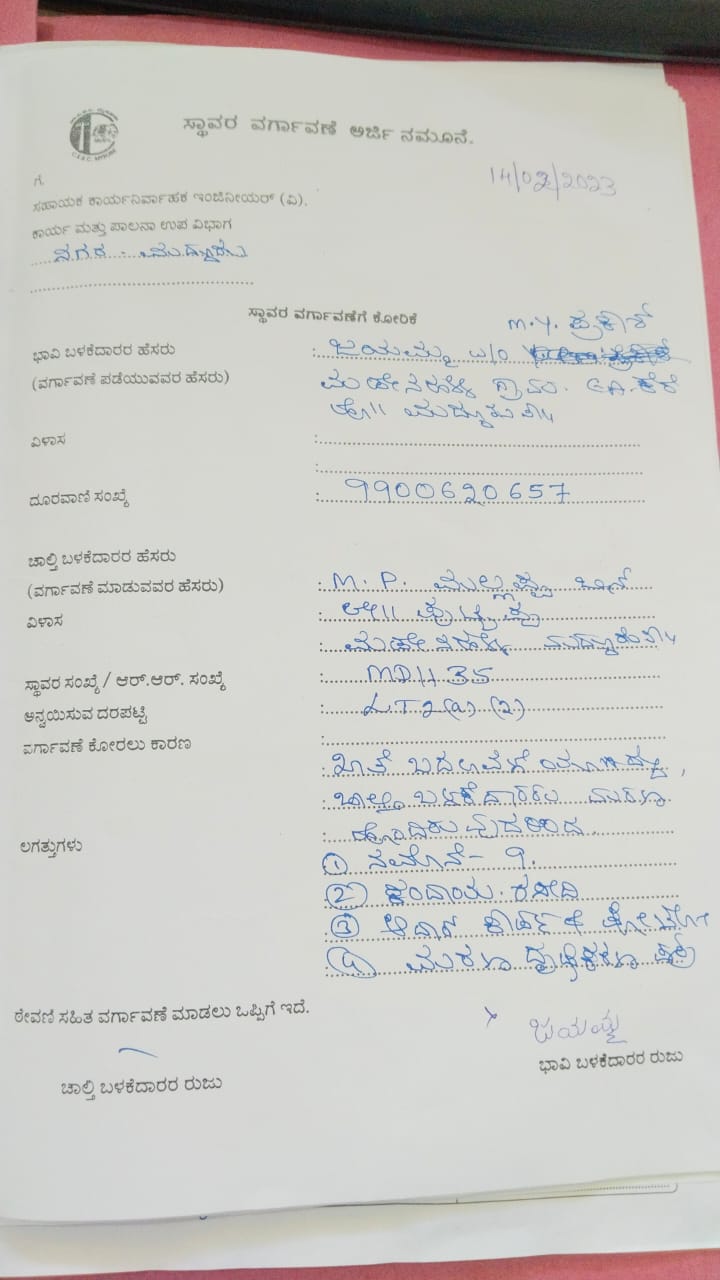 ಸ್ಥಾವರ ವರ್ಗಾವಣೆ ಅರ್ಜಿ ನಮೂನೆ.
14/02/2023
ಗೆ,
ಸಹಾಯಕ ಕಾರ್ಯನಿರ್ವಾಹಕ ಇಂಜಿನೀಯರ್ (ವಿ),
ಕಾರ್ಯ ಮತ್ತು ಪಾಲನಾ ಉಪ ವಿಭಾಗ
ನಗರ - ಮದ್ದೂರು
ಸ್ಥಾವರ ವರ್ಗಾವಣೆಗೆ ಕೋರಿಕೆ
M.Y. ಪ್ರಕಾಶ್
ಭಾವಿ ಬಳಕೆದಾರರ ಹೆಸರು : ಜಯಮ್ಮ w/o
(ವರ್ಗಾವಣೆ ಪಡೆಯುವವರ ಹೆಸರು) ಗ್ರಾಮ. ಕೆರೆ
ಮದ್ದೂರು ತಾ॥
ವಿಳಾಸ :
ದೂರವಾಣಿ ಸಂಖ್ಯೆ : 9900620657
ಚಾಲ್ತಿ ಬಳಕೆದಾರರ ಹೆಸರು
(ವರ್ಗಾವಣೆ ಮಾಡುವವರ ಹೆಸರು) : M. P. ಮಲ್ಲಪ್ಪ ಬಿನ್
ವಿಳಾಸ : ಲೇ॥ ಪುಟ್ಟಪ್ಪ
: ಮದ್ದೂರು ತಾ॥
ಸ್ಥಾವರ ಸಂಖ್ಯೆ / ಆರ್.ಆರ್. ಸಂಖ್ಯೆ : MDH 35
ಅನ್ವಯಿಸುವ ದರಪಟ್ಟಿ : LT2(a) (2)
ವರ್ಗಾವಣೆ ಕೋರಲು ಕಾರಣ :
: ಖಾತೆ ಬದಲಾವಣೆ
: ಚಾಲ್ತಿ ಬಳಕೆದಾರರು ಮರಣ
: ಹೊಂದಿರುವುದರಿಂದ
ಲಗತ್ತುಗಳು : ① ನಮೂನೆ - 9.
: ② ಕಂದಾಯ ರಶೀದಿ
: ③ ಆಧಾರ್ ಕಾರ್ಡ್ & ಫೋಟೋ
: ④ ಮರಣ ದೃಢೀಕರಣ ಪತ್ರ
ಠೇವಣಿ ಸಹಿತ ವರ್ಗಾವಣೆ ಮಾಡಲು ಒಪ್ಪಿಗೆ ಇದೆ.
x ಜಯಮ್ಮ
ಚಾಲ್ತಿ ಬಳಕೆದಾರರ ರುಜು
ಭಾವಿ ಬಳಕೆದಾರರ ರುಜು